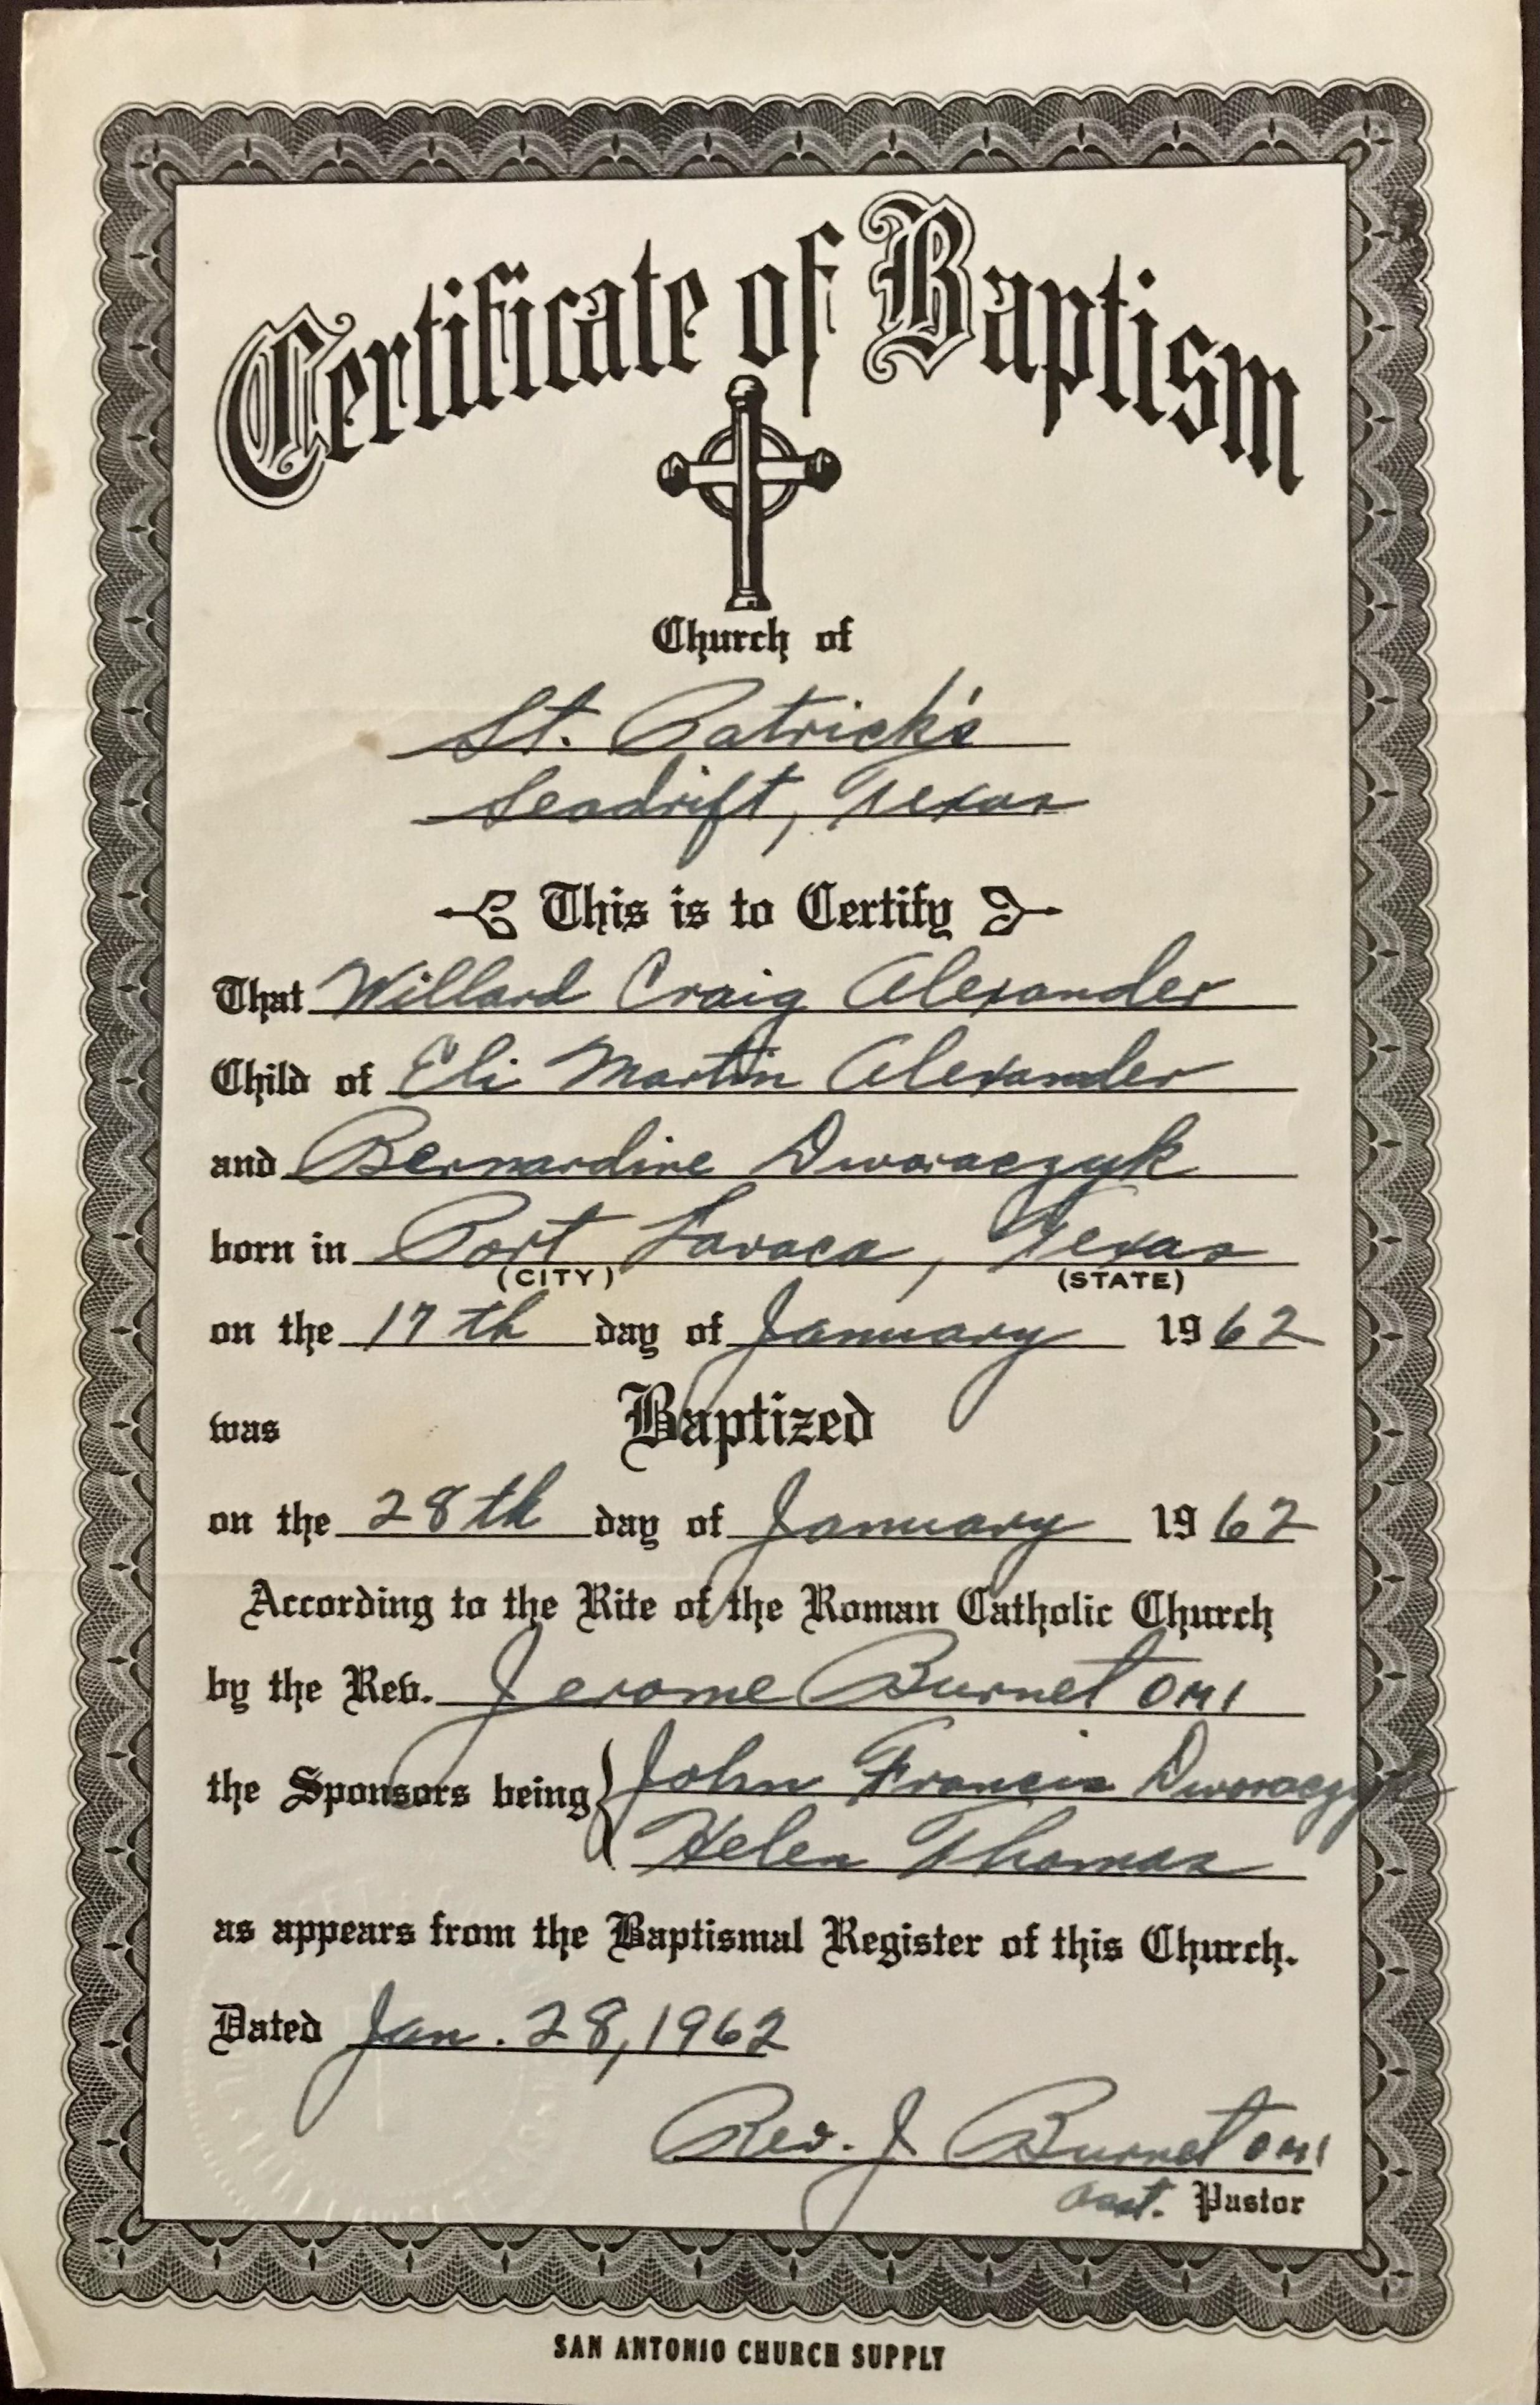 Certificate of Baptism
Church of
St. Patrick's
Seadrift, Texas
This is to Certify
That Willard Craig Alexander
Child of Eli Martin Alexander
and Bernardine Dworaczyk
born in Port Lavaca, Texas
(CITY) (STATE)
on the 17th day of January 1962
was Baptized
on the 28th day of January 1962
According to the Rite of the Roman Catholic Church
by the Rev. Jerome Burnet OMI
the Sponsors being John Francis Dworaczyk
Helen Thomas
as appears from the Baptismal Register of this Church.
Dated Jan. 28, 1962
Rev. J Burnet OMI
Asst. Pastor
SAN ANTONIO CHURCH SUPPLY